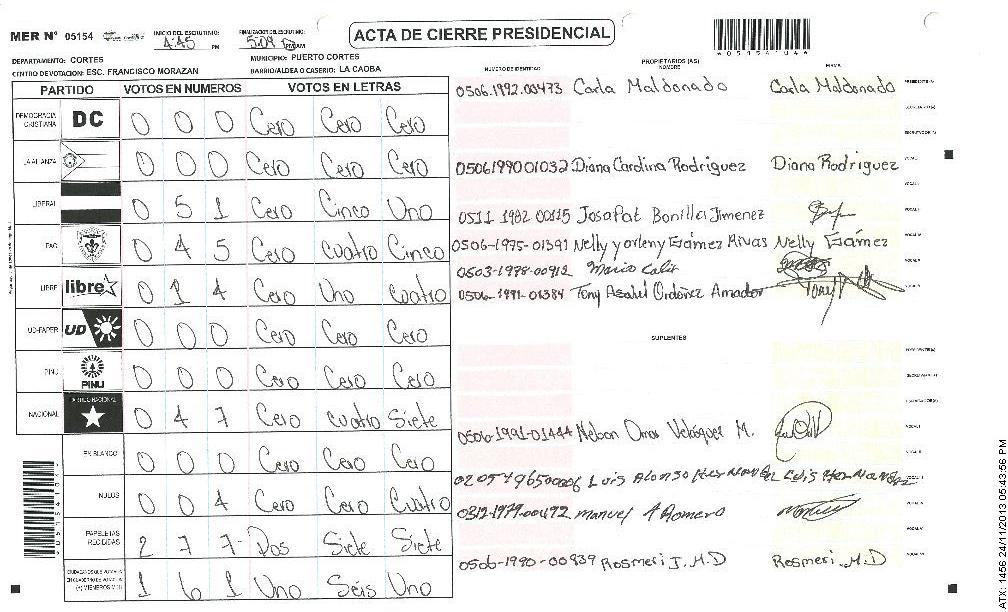 MER N° 05154
INICIO DEL ESCRUTINIO: 4:45 PM
FINALIZACION DEL ESCRUTINIO: 5:09 PM/AM
ACTA DE CIERRE PRESIDENCIAL
DEPARTAMENTO: CORTES
MUNICIPIO: PUERTO CORTES
CENTRO DE VOTACION: ESC. FRANCISCO MORAZAN
BARRIO/ALDEA O CASERIO: LA CAOBA
PARTIDO VOTOS EN NUMEROS VOTOS EN LETRAS
DEMOCRACIA CRISTIANA DC 0 0 0 Cero Cero Cero
LA ALIANZA 0 0 0 Cero Cero Cero
LIBERAL 0 5 1 Cero Cinco Uno
PAC 0 4 5 Cero Cuatro Cinco
LIBRE libre 0 1 4 Cero Uno Cuatro
UD-FAPER UD 0 0 0 Cero Cero Cero
PINU PINU 0 0 0 Cero Cero Cero
NACIONAL 0 4 7 Cero Cuatro Siete
EN BLANCO 0 0 0 Cero Cero Cero
NULOS 0 0 4 Cero Cero Cuatro
PAPELETAS RECIBIDAS 2 7 7 Dos Siete Siete
1 6 1 Uno Séis Uno
PROPIETARIOS (AS)
NOMBRE FIRMA
0506.1992.00473 Carla Maldonado Carla Maldonado
0506199001032 Diana Carolina Rodriguez Diana Rodriguez
0511 1982 00115 Josafat Bonilla Jimenez
0506-1975-01391 Nelly yorleny Gámez Rivas Nelly Gámez
0503-1978-00912 Mario Calix
0506-1991-01384 Tony Asabel Ordoñez Amador Tony
SUPLENTES
0506-1991-01444 Nelson Omar Velásquez M.
Luis Alonso Hernandez Luis Hernandez
0312-1979-00492 Manuel A Romero
0506-1990-00939 Rosmeri J. M.D Rosmeri .M.D
ATX: 1456 24/11/2013 05:43:56 PM